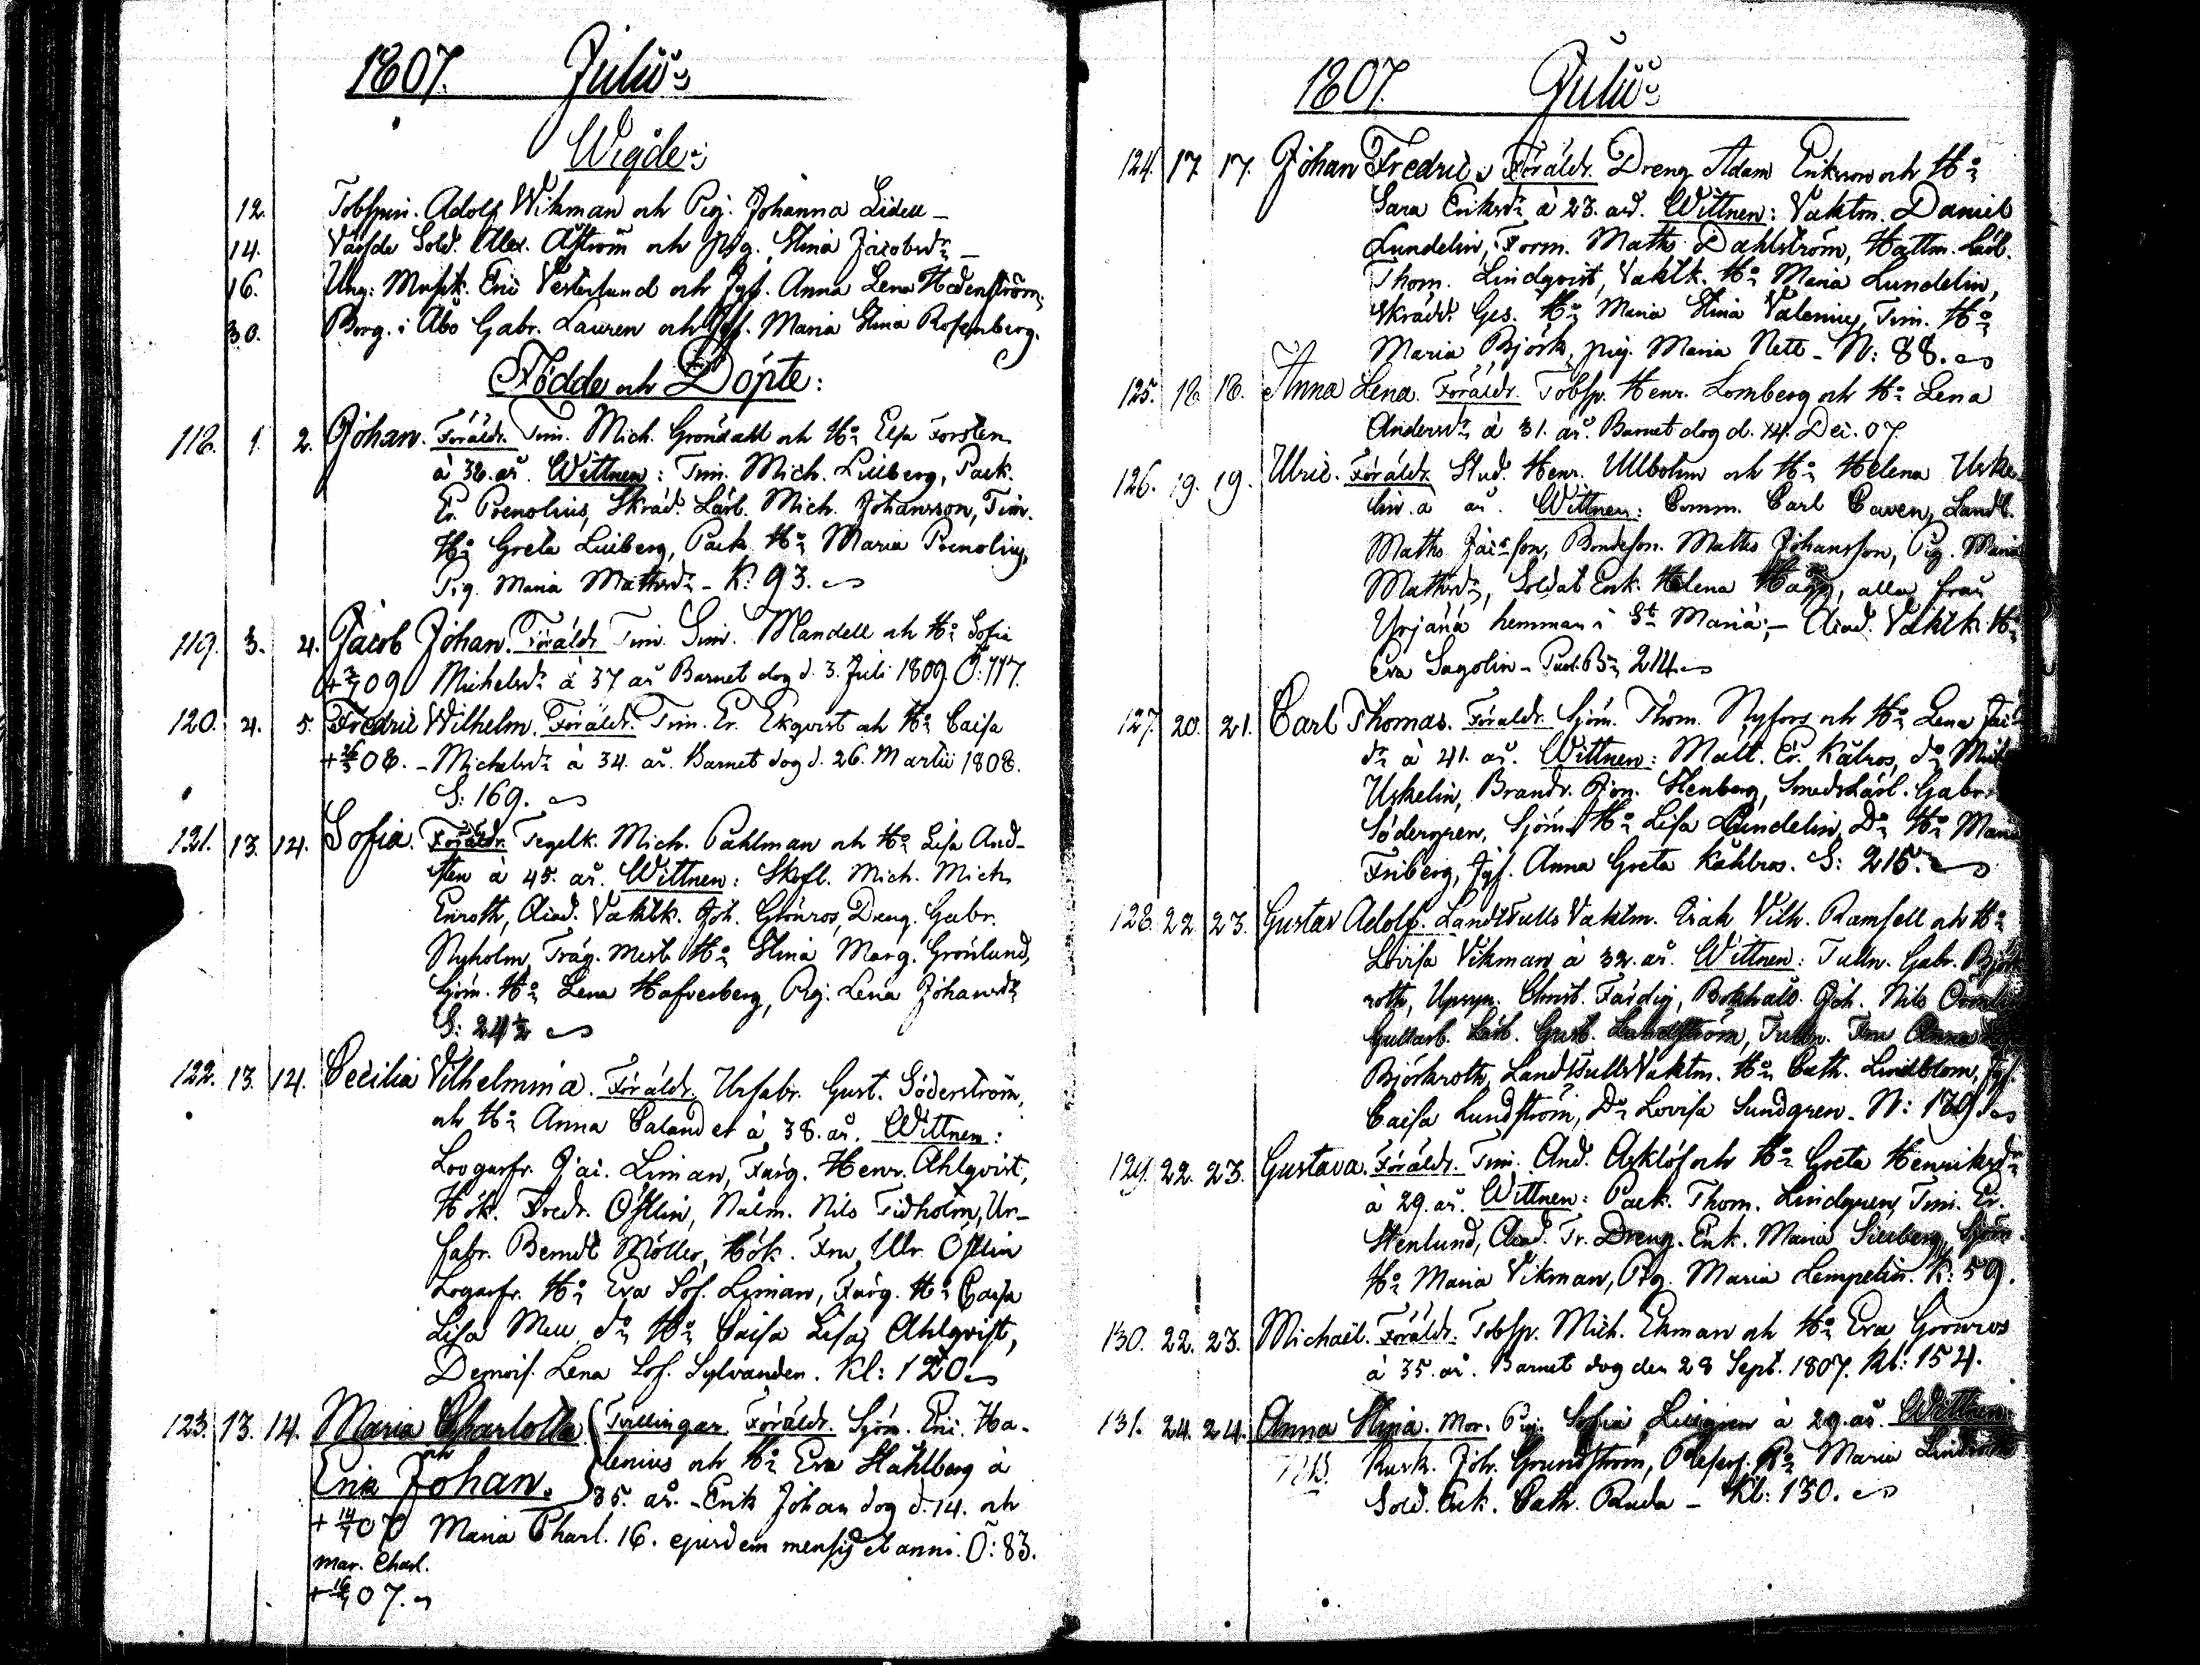 1807. Julius
Wigde:
12. Tobspin. Adolf Wikman och Pig. Johanna Lidell -
14. Värfde Sold. Alex. Åström och Pig. Stina Jacobsdr -
16. Ung: Musik. Eric Vesterlund och Jgf. Anna Lena Hedenström,
30. Borg. i Åbo Gabr. Lauren och Jgf. Maria Stina Rosenberg.
Födde och Döpte:
118. 1. 2. Johan. Föräldr. Tim. Mich. Gröndahl och Ho Elsa Forsten
à 36. år. Wittnen: Tim. Mich. Liliberg, Pack.
Er. Prenolius, Skräd. Lärl. Mich. Johansson, Tim.
Ho Greta Liliberg, Pack. Ho Maria Prenolius,
Pig. Maria Mathsdr - K: 93.
119. 3. 4. Jacob Johan. Föräldr. Tim. Sim. Mandell och Ho Sofia
+ 3/7 09 Michelsdr à 37 år Barnet dog d. 3. Juli 1809. Ö: 117.
120. 4. 5. Fredric Wilhelm. Föräldr. Tim. Er. Ekqvist och Ho Caisa
+ 26/3 08. - Michelsdr à 34. år. Barnet dog d. 26. Martii 1808.
S: 169.
121. 13. 14. Sofia. Föräldr. Tegelk. Mich. Pahlman och Ho Lisa And-
sten à 45. år. Wittnen: Skofl. Mich. Mich.
Enroth, Acad. Vaktk. Joh. Grönros, Dreng. Gabr.
Nyholm, Träg. Mest. Ho Stina Marg. Grönlund,
Sjöm. Ho Lena Hafverberg, Pig. Lena Johansdr
S: 24½
122. 13. 14. Cecilia Vilhelmina. Föräldr. Urfabr. Gust. Söderström,
och Ho Anna Calander à 38. år. Wittnen:
Lovgarfr. Jac. Liman, Färg. Henr. Ahlqvist,
Hök. Fredr. Östlin, Nålm. Nils Tidholm, Ur-
fabr. Berndt Möller, Hök. Fru, Ulr. Östlin
Logarfr. Ho Eva Sof. Liman, Färg. Ho Caisa
Lisa Mell do Ho Caisa Lisa Ahlqvist,
Demois. Lena Sof. Sylvander. Kl: 120
123. 13. 14. Maria Charlotta { Tvillingar. Föräldr. Sjöm. Eric. Ha-
och
Erik Johan. lenius och Ho Eva Ståhlberg à
35. år. - Erik Johan dog d. 14. och
+ 14/7 07 Maria Charl. 16. ejusdem mensis et anni. Ö: 83.
Mar. Charl.
+ 16/7 07.
1807. Julius
124. 17. 17. Johan Fredric. Föräldr. Dreng Adam Eriksson och Ho
Sara Eriksdr à 23. år. Wittnen: Vaktm. Daniel
Lundelin, Form. Maths Dahlström, Hattm. Lärl.
Thom. Lindqvist, Vaktk. Ho Maria Lundelin,
Skrädd. Ges. Ho Maria Stina Valenius, Tim. Ho
Maria Björk, pig. Maria Nett - N: 88.
125. 18. 18. Anna Lena. Föräldr. Tobsp. Henr. Lomberg och Ho Lena
Andersdr à 31. år. Barnet dog d. 14. Dec. 07.
126. 19. 19. Ulric. Föräldr. Stud. Henr. Ullbohm och Ho Helena Uske-
lin. à år. Wittnen: Comm. Carl Caven, Landb.
Maths Jacsson, Bondeson. Maths Johansson, Pig. Maria
Mathsdr, Soldat Enk. Helena Hagg, alla från
Yrjänä hemman i St Mariä; - Acad. Vaktk. Ho
Eva Sagolin - Pad. Bn 214.
127. 20. 21. Carl Thomas. Föräldr. Sjöm. Thom. Nyfors och Ho Lena Jac-
dr à 41. år. Wittnen: Matt. Er. Kålros, do
Uskelin, Brandv. Jon. Stenberg, Smeds Lärl. Gabr.
Södergren, Sjöm. Ho Lisa Lundelin, Do Ho Maria
Friberg, Jgf. Anna Greta Kålbros. S: 215.
128. 22. 23. Gustav Adolf. Landtulls Vaktm. Isak Vilh. Ramsell och Ho
Lovisa Vikman à 32. år. Wittnen: Tulln. Gabr. Björk-
roth, Upsyn. Christ. Färdig, Bokhåll. Joh. Nils
Gullarb. Lärl. Gust. Landström, Tulln. Fru Anna
Björkroth, Landtulls Vaktm. Ho Cath. Lindblom, Jgf.
Caisa Lundström, Do Lovisa Sundgren. N: 179
129. 22. 23. Gustava. Föräldr. Tim. And. Asklöf och Ho Greta Henriksdr
à 29. år. Wittnen: Pack. Thom. Lindgren, Tim. Er.
Stenlund, Acad. Tr. Dreng. Enk. Maria Sileberg, Sjöm.
Ho Maria Vikman, Pig. Maria Lempelin. K: 59.
130. 22. 23. Michaël. Föräldr. Tobsp. Mich. Ekman och Ho Eva Grönros
à 35. år. Barnet dog den 28 Sept. 1807. Kl: 154.
131. 24. 24. Anna Stina. Mor. Pig. Sofia Liligren à 29. år. Wittnen:
Kusk. Joh. Grundström, Maria
Sold. Enk. Cath. Ruda - Kl: 130.